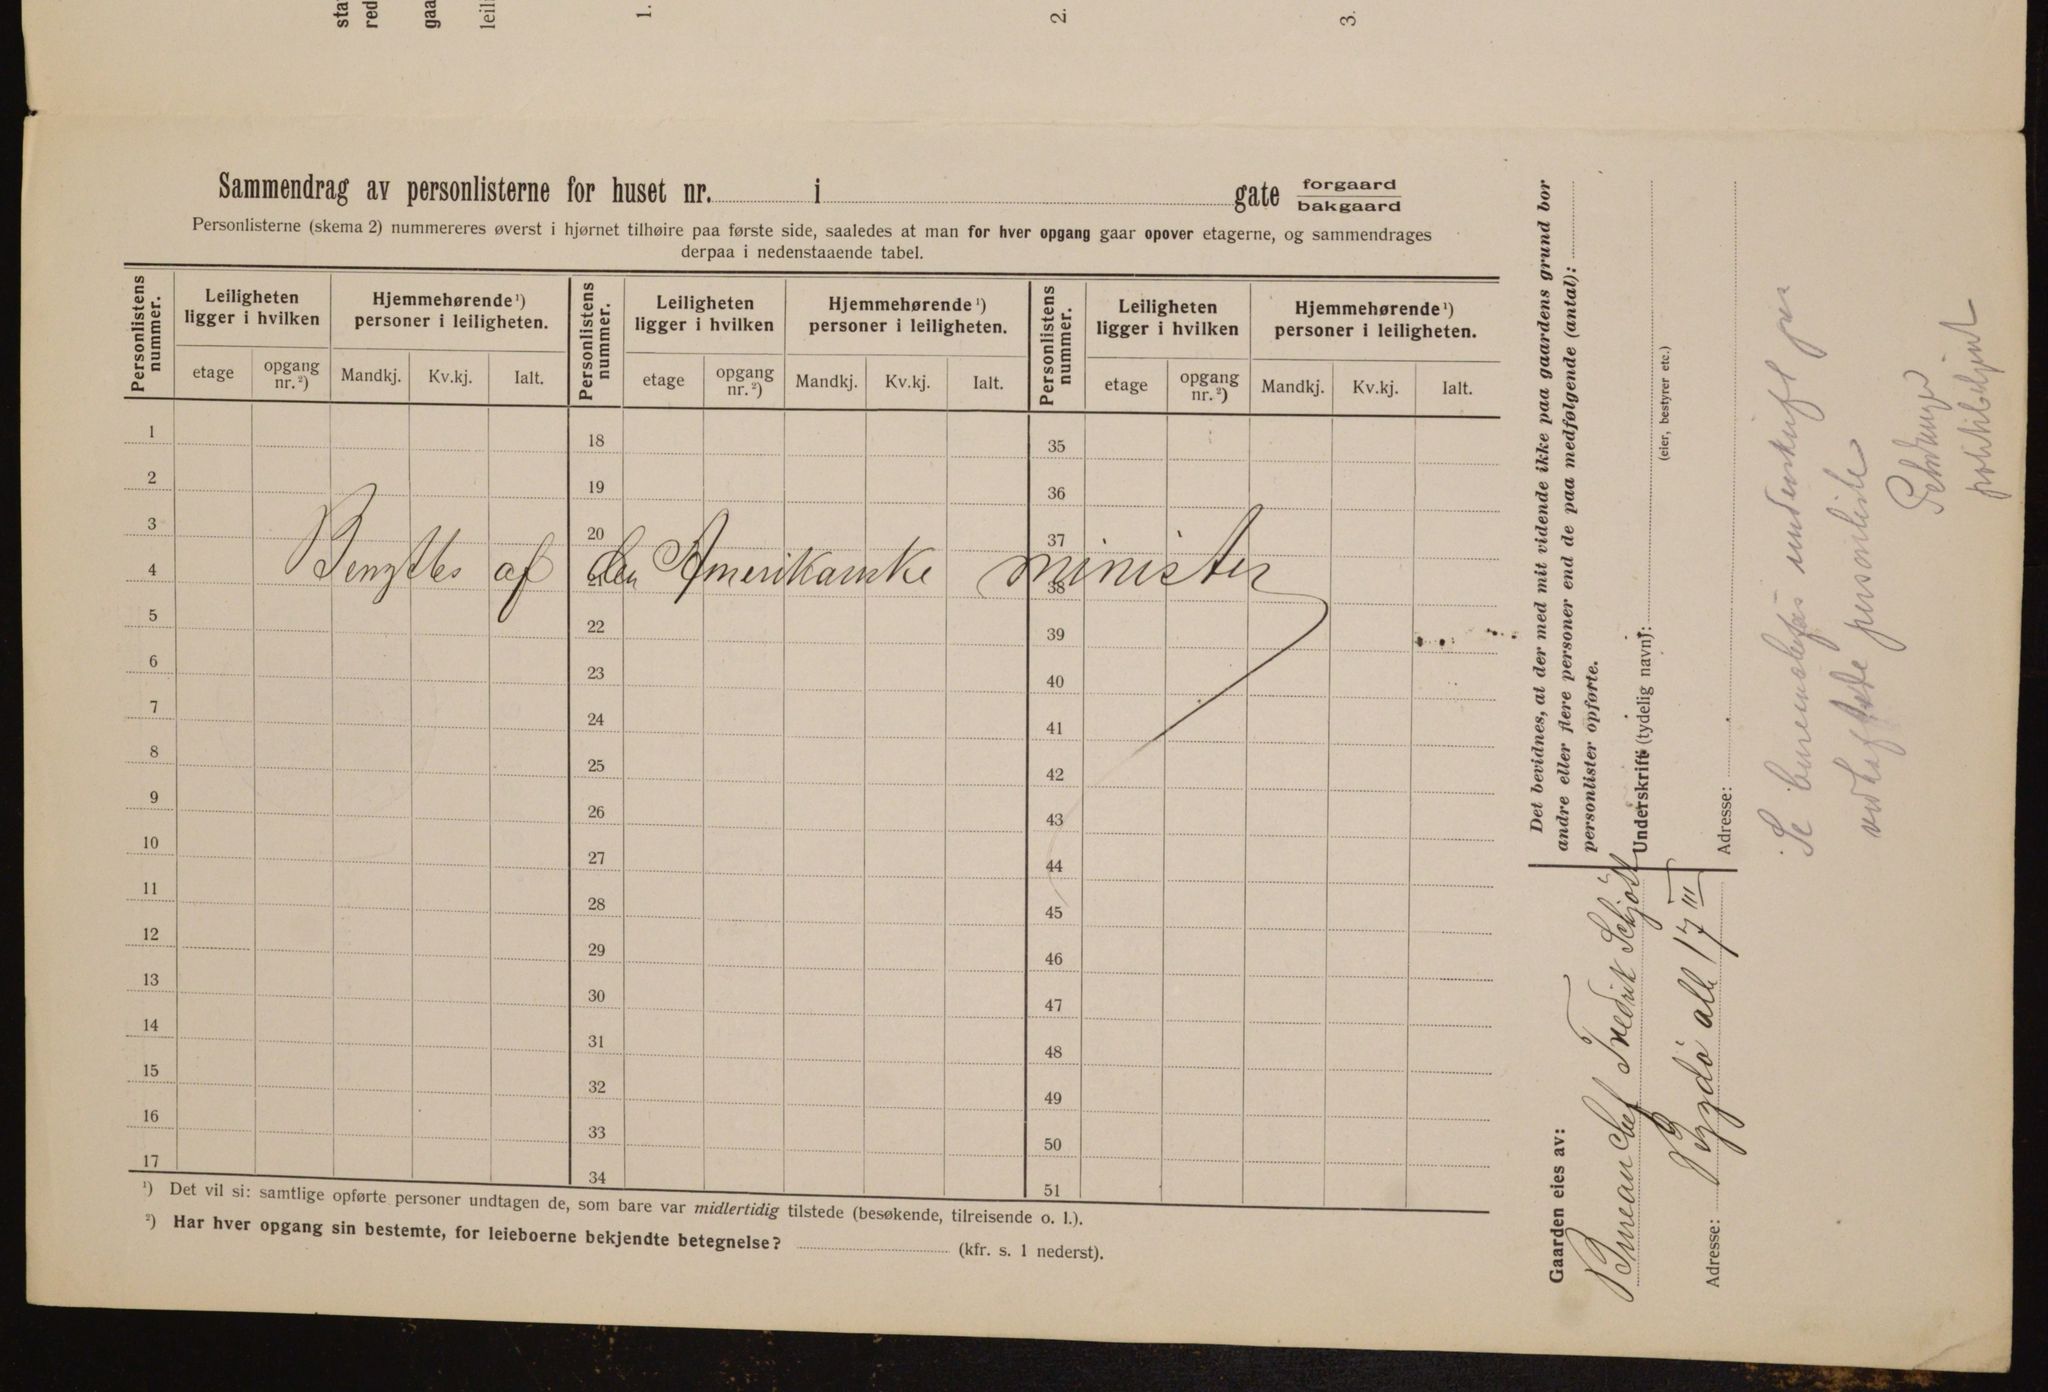 sta
red
gaa
leili
1.
2.
3.
Sammendrag av personlisterne for huset nr. i gate forgaard
bakgaard
Personlisterne (skema 2) nummereres øverst i hjørnet tilhøire paa første side, saaledes at man for hver opgang gaar opover etagerne, og sammendrages
derpaa i nedenstaaende tabel.
Personlistens nummer.
Leiligheten ligger i hvilken
Hjemmehørende ¹) personer i leiligheten.
Personlistens nummer.
Leiligheten ligger i hvilken
Hjemmehørende ¹) personer i leiligheten.
Personlistens nummer.
Leiligheten ligger i hvilken
Hjemmehørende ¹) personer i leiligheten.
etage opgang nr. ²) Mandkj. Kv.kj. Ialt. etage opgang nr. ²) Mandkj. Kv.kj. Ialt. etage opgang nr. ²) Mandkj. Kv.kj. Ialt.
1 18 35
2 19 36
3 20 37
Benyttes af den Amerikanske minister
4 21 38
5 22 39
6 23 40
7 24 41
8 25 42
9 26 43
10 27 44
11 28 45
12 29 46
13 30 47
14 31 48
15 32 49
16 33 50
17 34 51
¹) Det vil si: samtlige opførte personer undtagen de, som bare var midlertidig tilstede (besøkende, tilreisende o. l.).
²) Har hver opgang sin bestemte, for leieboerne bekjendte betegnelse? (kfr. s. 1 nederst).
Det bevidnes, at der med mit vidende ikke paa gaardens grund bor
andre eller flere personer end de paa medfølgende (antal):
personlister opførte.
Underskrift (tydelig navn):
(eier, bestyrer etc.)
Adresse:
Gaarden eies av:
Bureauchef Fredrik Schjött
Adresse: Bygdö allé 17 III
Se bureauchefens underskrift paa
vedhæftede personliste
politibetjent